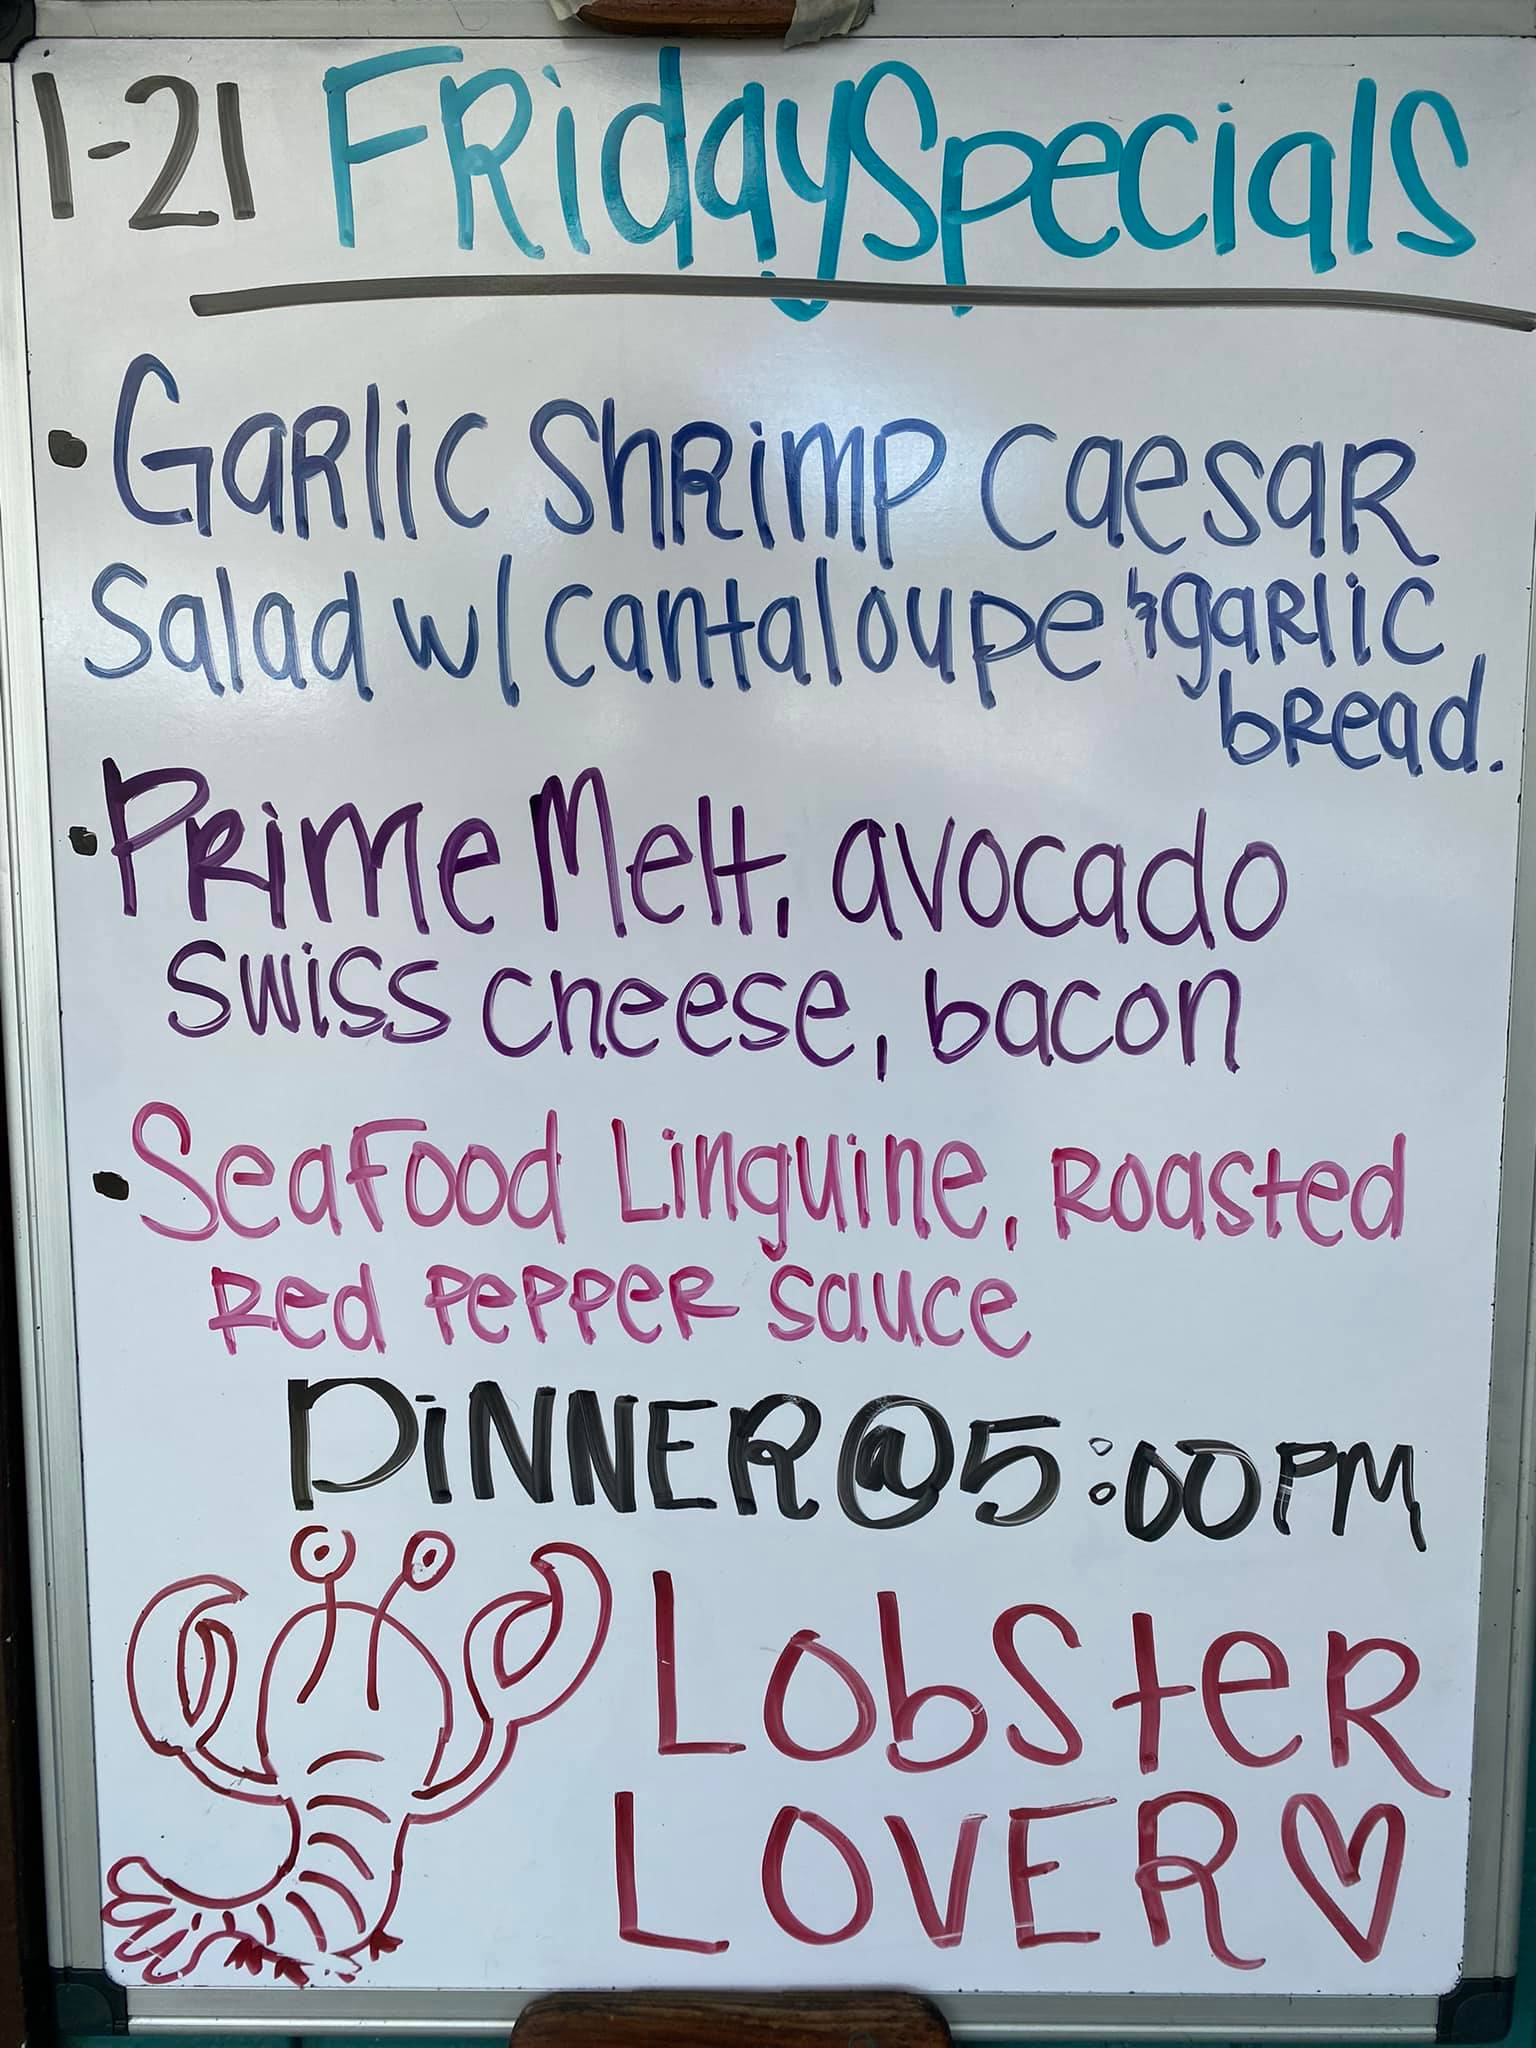 1-21 Friday Specials
• Garlic Shrimp Caesar
Salad w/ cantaloupe & garlic
bread.
• Prime Melt, avocado
swiss cheese, bacon
• Seafood Linguine, Roasted
Red Pepper sauce
DiNNER @ 5:00PM
LobSteR
LOVER ♡